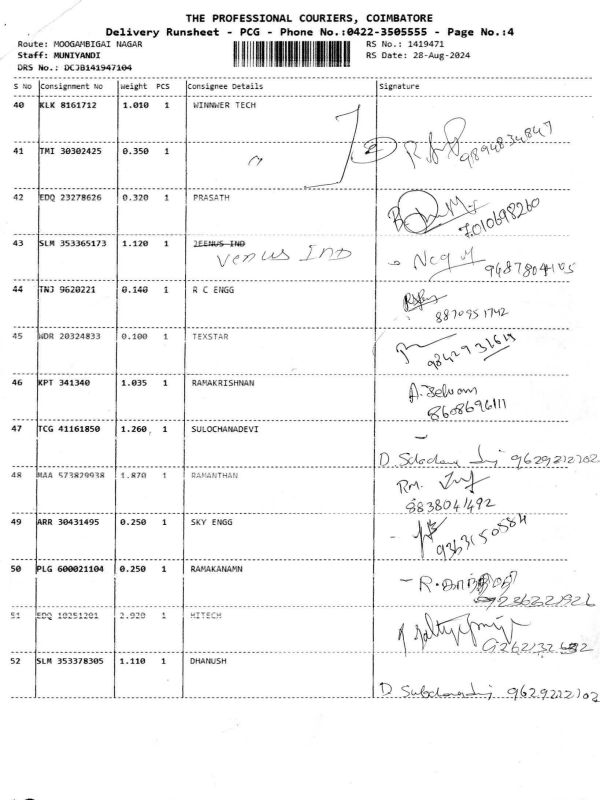 THE PROFESSIONAL COURIERS, COIMBATORE
Delivery Runsheet - PCG - Phone No.:0422-3505555 - Page No.:4
Route: MOOGAMBIGAI NAGAR RS No.: 1419471
Staff: MUNIYANDI RS Date: 28-Aug-2024
DRS No.: DCJB141947104
S No Consignment No Weight PCS Consignee Details Signature
40 KLK 8161712 1.010 1 WINNWER TECH
41 TMI 30302425 0.350 1 2 9894834847
42 EDQ 23278626 0.320 1 PRASATH
7010698260
43 SLM 353365173 1.120 1 JEENUS IND
Venus IND
44 TNJ 9620221 0.140 1 R C ENGG
8870951742
45 WDR 20324833 0.100 1 TEXSTAR
46 KPT 341340 1.035 1 RAMAKRISHNAN A. Selvam
8608696111
47 TCG 41161850 1.260 1 SULOCHANADEVI
D 9629212102
48 MAA 573829938 1.870 1 RAMANTHAN RM.
8838041492
49 ARR 30431495 0.250 1 SKY ENGG
9363150584
50 PLG 600021104 0.250 1 RAMAKANAMN
51 EDQ 10251201 2.920 1 HITECH
52 SLM 353378305 1.110 1 DHANUSH
D 9629212102